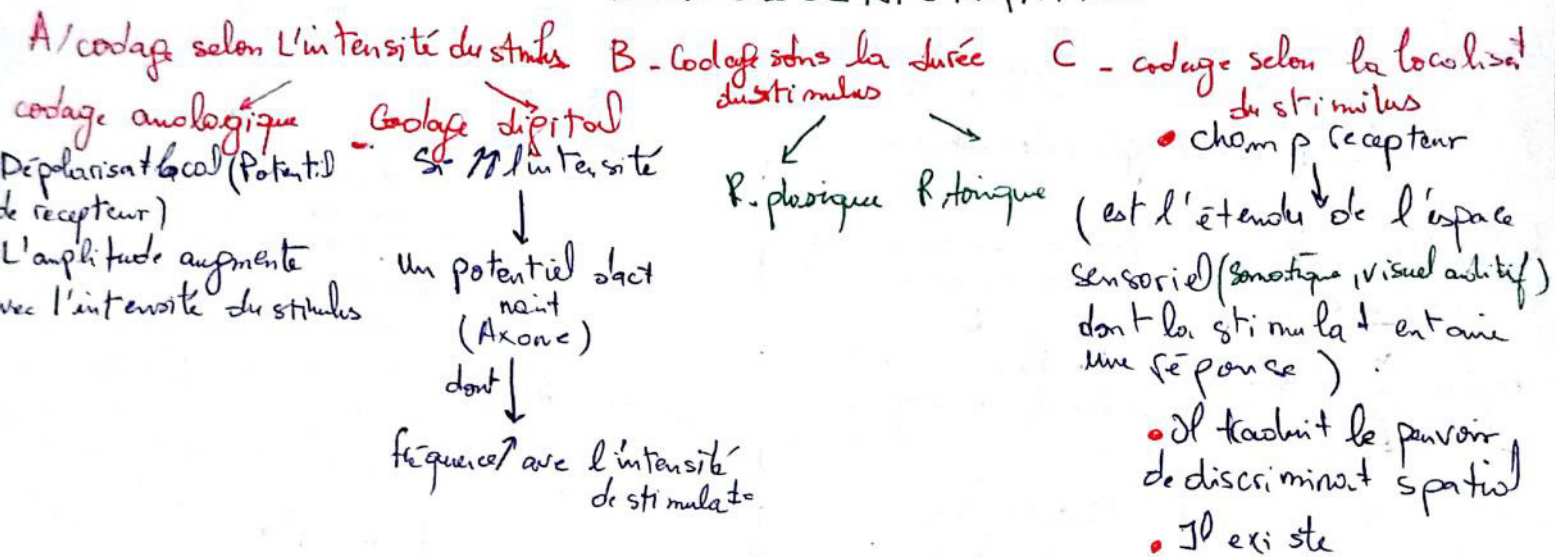 A/codage selon L'intensité du stmls
codage analogique
Dépolarisat local (Potentiel
de recepteur)
L'amplitude augmente
vec l'intensité du stimulus
Codage digital
Si ↗↗ l'intensité
↓
un potentiel d'act
nait
(Axone)
dont ↓
fréquence↗ ave l'intensité
de stimulat°
B - Codage sons la durée
du stimulus
R. phasique R. tonique
C - codage selon la localisat
du stimilus
• champ recepteur
↓
(est l'étendu de l'espace
sensoriel (somatique, visuel auditif)
dont la stimulat entaine
une réponse) .
• Il traduit le pouvoir
de discriminat spatial
• Il existe